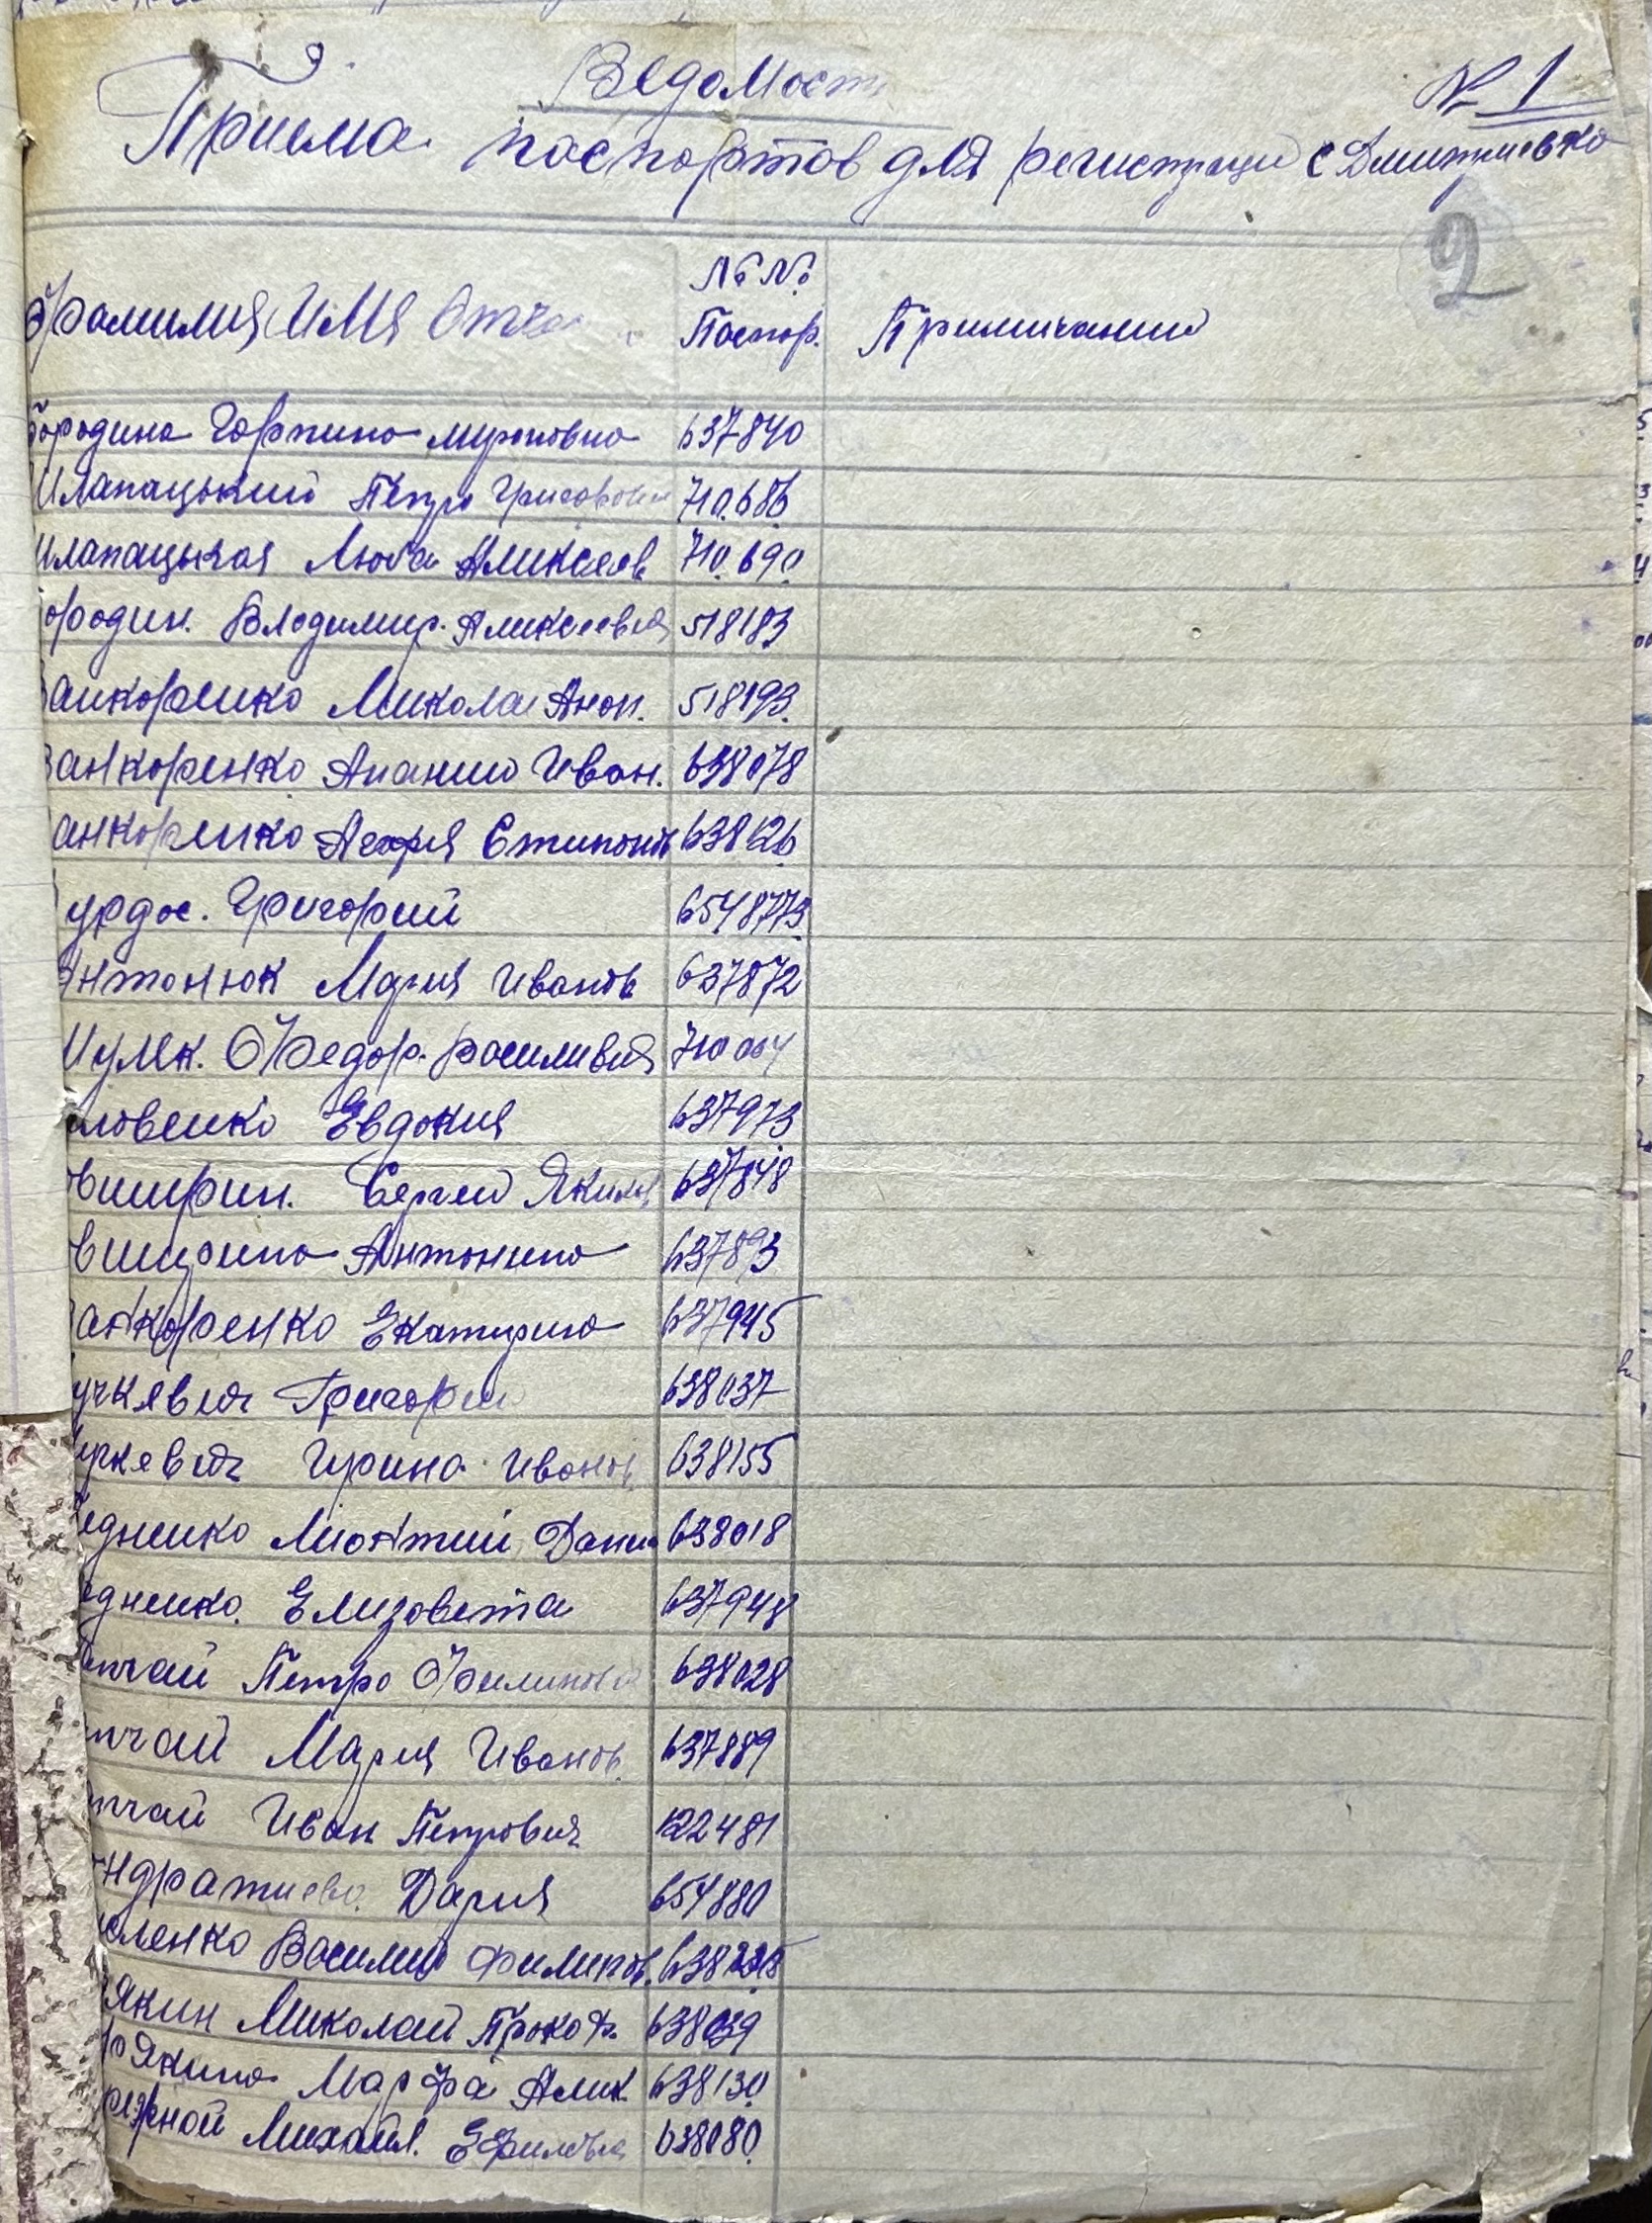 Ведомост
№ 1
Приема паспортов для регистрации с Дмитриевка
2
Фамилия Имя Отче
№ №
Паспор.
Примичании
бородина Гарпина мироновна 637840
Шлапацький Петро Григорович 710.686
Шлапацькая Люба Аликсеев 710.690
ородин. Владимир. Аликсеевич 518183
Занкоренко Микола Анон. 518193
Занкоренко Апанию Иван. 638078
анкоренко Агафя Степонов 638126
урдос. Григорий 6548773
Антонюк Мария Иванов 637872
Шулек. Федор. василивич 710004
ловенко Евдокия 637973
овширин. Сергей Яким 637848
овширина Антонина 637893
Занкоренко Екатирина 637945
учкявич Григорий 638037
учкевич Ирина Иванов 638155
едненко Лионтий Данил 638018
едненко. Елизовета 637948
пчай Петро Филипович 638028
пчай Мария Иванов. 637889
пчай Иван Петрович 122481
ндратиева. Дария 654880
сленко Василий Филипов.
якин Миколай Прокоф. 638039
рякина Марфа Алик. 638130
режной Михаил. Ефимович 638080